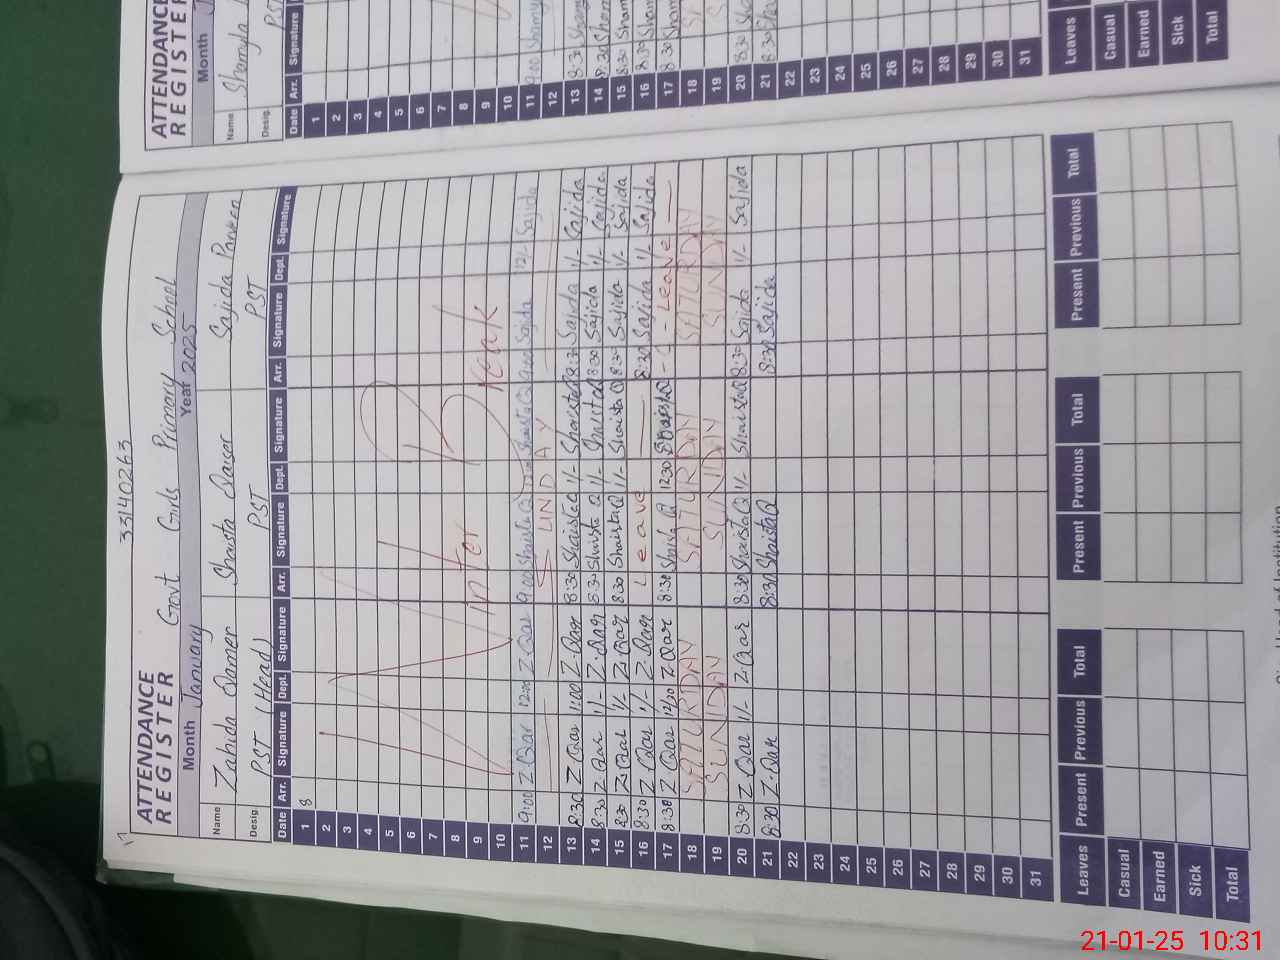 33140263
ATTENDANCE REGISTER
Govt Girls Primary School
Month January Year 2025
Name Zahida Qamer Shaista Qaiser Sajida Parveen
Desig. PST (Head) PST PST
Date Arr. Signature Dept. Signature Arr. Signature Dept. Signature Arr. Signature Dept. Signature
1 8
2
3
4
5
6
7
8
9
10
Winter Break
11 9:00 Z Qar 12:00 Z Qar 9:00 Shaista Q Shaista Q 9:00 Sajida 12/- Sajida
12 SUNDAY
13 8:30 Z Qar 11:00 Z. Qar 8:30 Shaista Q 1/- Shaista Q 8:30 Sajida 1/- Sajida
14 8:30 Z. Qar 1/- Z. Qar 8:30 Shaista Q 1/- Shaista Q 8:30 Sajida 1/- Sajida
15 8:30 Z. Qar 1/- Z. Qar 8:30 Shaista Q 1/- Shaista Q 8:30 Sajida 1/- Sajida
16 8:30 Z. Qar 1/- Z. Qar Leave 8:30 Sajida 1/- Sajida
17 8:30 Z. Qar 12:30 Z. Qar 8:30 Shaista Q 12:30 Shaista Q - C - Leave
18 SATURDAY SATURDAY SATURDAY
19 SUNDAY SUNDAY SUNDAY
20 8:30 Z. Qar 1/- Z. Qar 8:30 Shaista Q 1/- Shaista Q 8:30 Sajida 1/- Sajida
21 8:30 Z. Qar 8:30 Shaista Q 8:30 Sajida
22
23
24
25
26
27
28
29
30
31
Leaves Present Previous Total Present Previous Total Present Previous Total
Casual
Earned
Sick
Total
ATTENDANCE REGISTER
Month
Name
Desig. PST
Date Arr. Signature
1
2
3
4
5
6
7
8
9
10
11 9:00
12
13 8:30
14 8:30
15 8:30
16 8:30
17 8:30
18
19
20 8:30
21 8:30
22
23
24
25
26
27
28
29
30
31
Leaves
Casual
Earned
Sick
Total
21-01-25 10:31